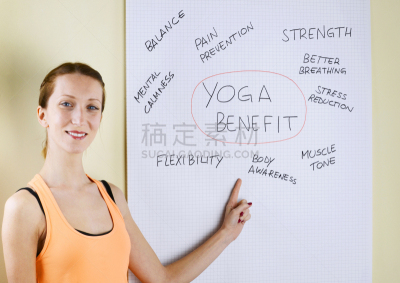 BALANCE
PAIN
PREVENTION
STRENGTH
BETTER
BREATHING
MENTAL
CALMNESS
STRESS
REDUCTION
YOGA
BENEFIT
搞定素材
SUCAIGAODING.COM
FLEXIBILITY
BODY
AWARENESS
MUSCLE
TONE